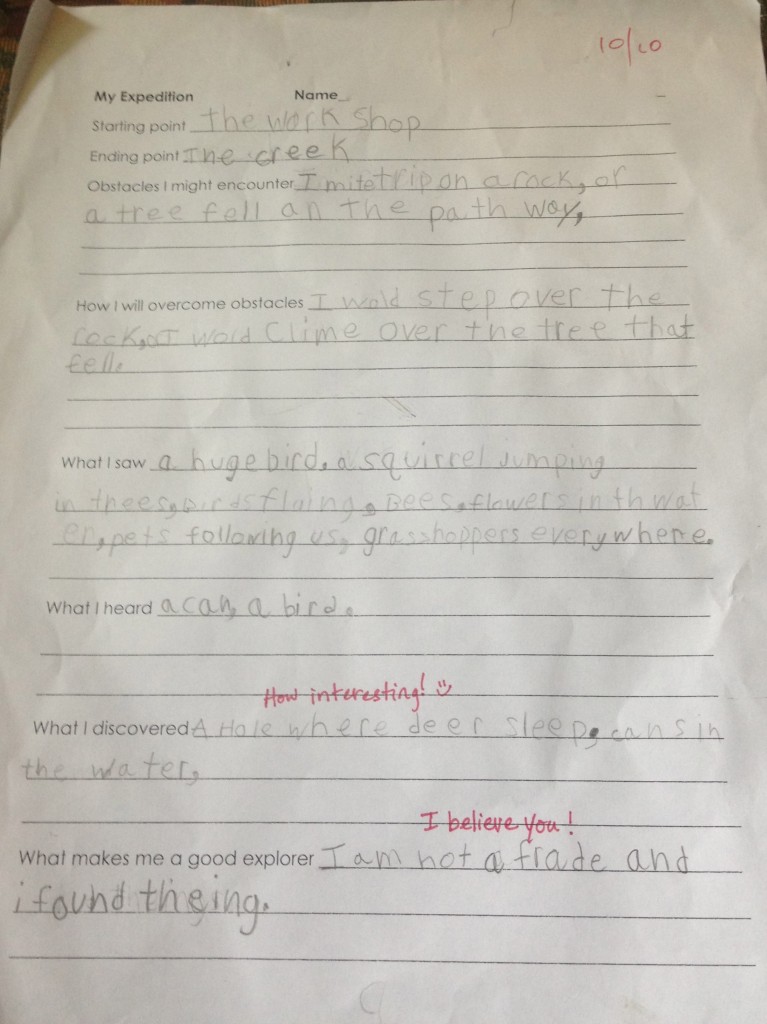 10/10
My Expedition Name
Starting point The work Shop
Ending point The creek
Obstacles I might encounter I mite trip on a rock, or
a tree fell an the path way,
How I will overcome obstacles I wold step over the
rock, or I wold Clime over the tree that
fell.
What I saw a huge bird, a squirrel jumping
in thees, birds flaing, Bees, flowers in th wat
er, pets following us, grasshoppers everywhere.
What I heard a can, a bird.
How interesting!
What I discovered A Hole where deer sleep, cans in
the water,
I believe you!
What makes me a good explorer I am not a frade and
i found theing.